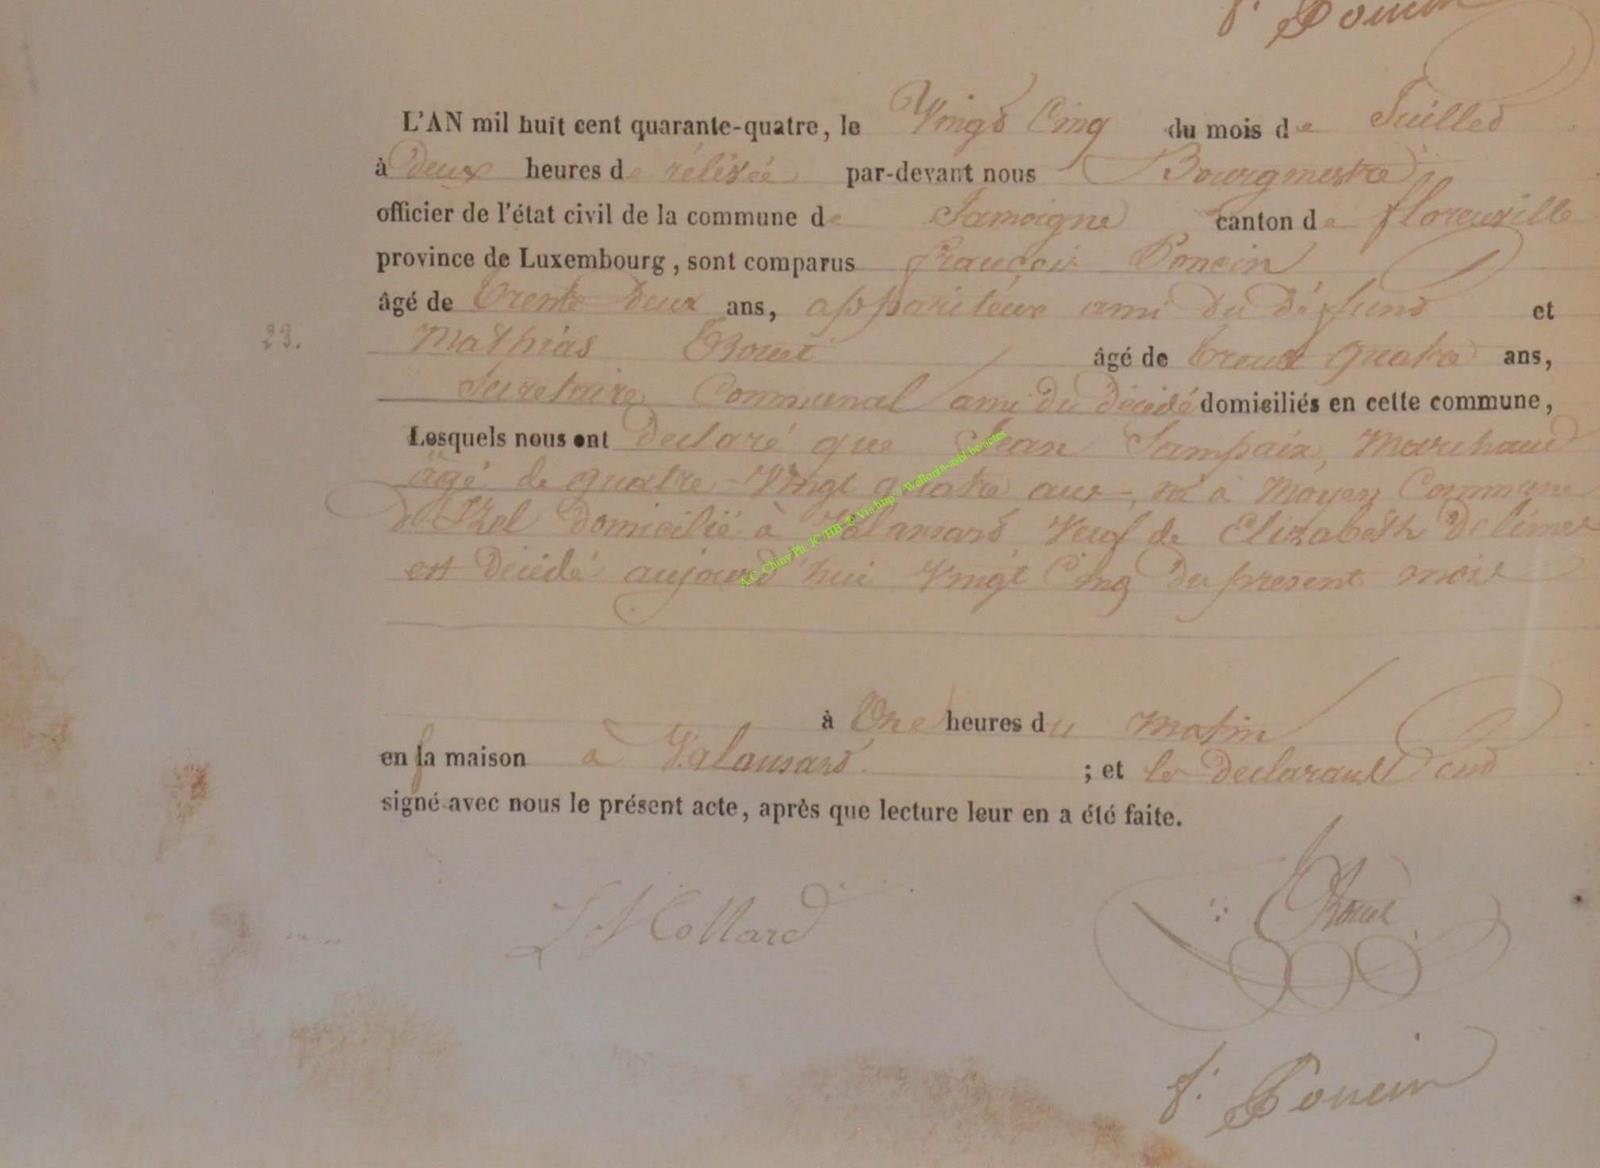 f. Poncin
L'AN mil huit cent quarante-quatre, le Vingt Cinq du mois de Juillet
à deux heures de rélévée par-devant nous Bourgmestre
officier de l'état civil de la commune de Jamoigne canton de florenville
province de Luxembourg, sont comparus françois Poncin
âgé de trente deux ans, appariteur ami du défunt et
23. Mathias âgé de trente quatre ans,
Secretaire Communal ami du décédé domiciliés en cette commune,
Lesquels nous ont declaré que Jean Sampaix, Marchand
âgé de quatre-Vingt quatre ans, né à Moyen Commune
d'Izel domicilié à Valansard, Veuf de Elizabeth
est décédé aujourd'hui Vingt Cinq du présent mois
à Onze heures du Matin
en sa maison à Valansard. ; et les declarants ont
signé avec nous le présent acte, après que lecture leur en a été faite.
Collard
f. Poncin
A.C. Chiny Ph. JC/HB © Via http://Wallonia-asbl.be/actes